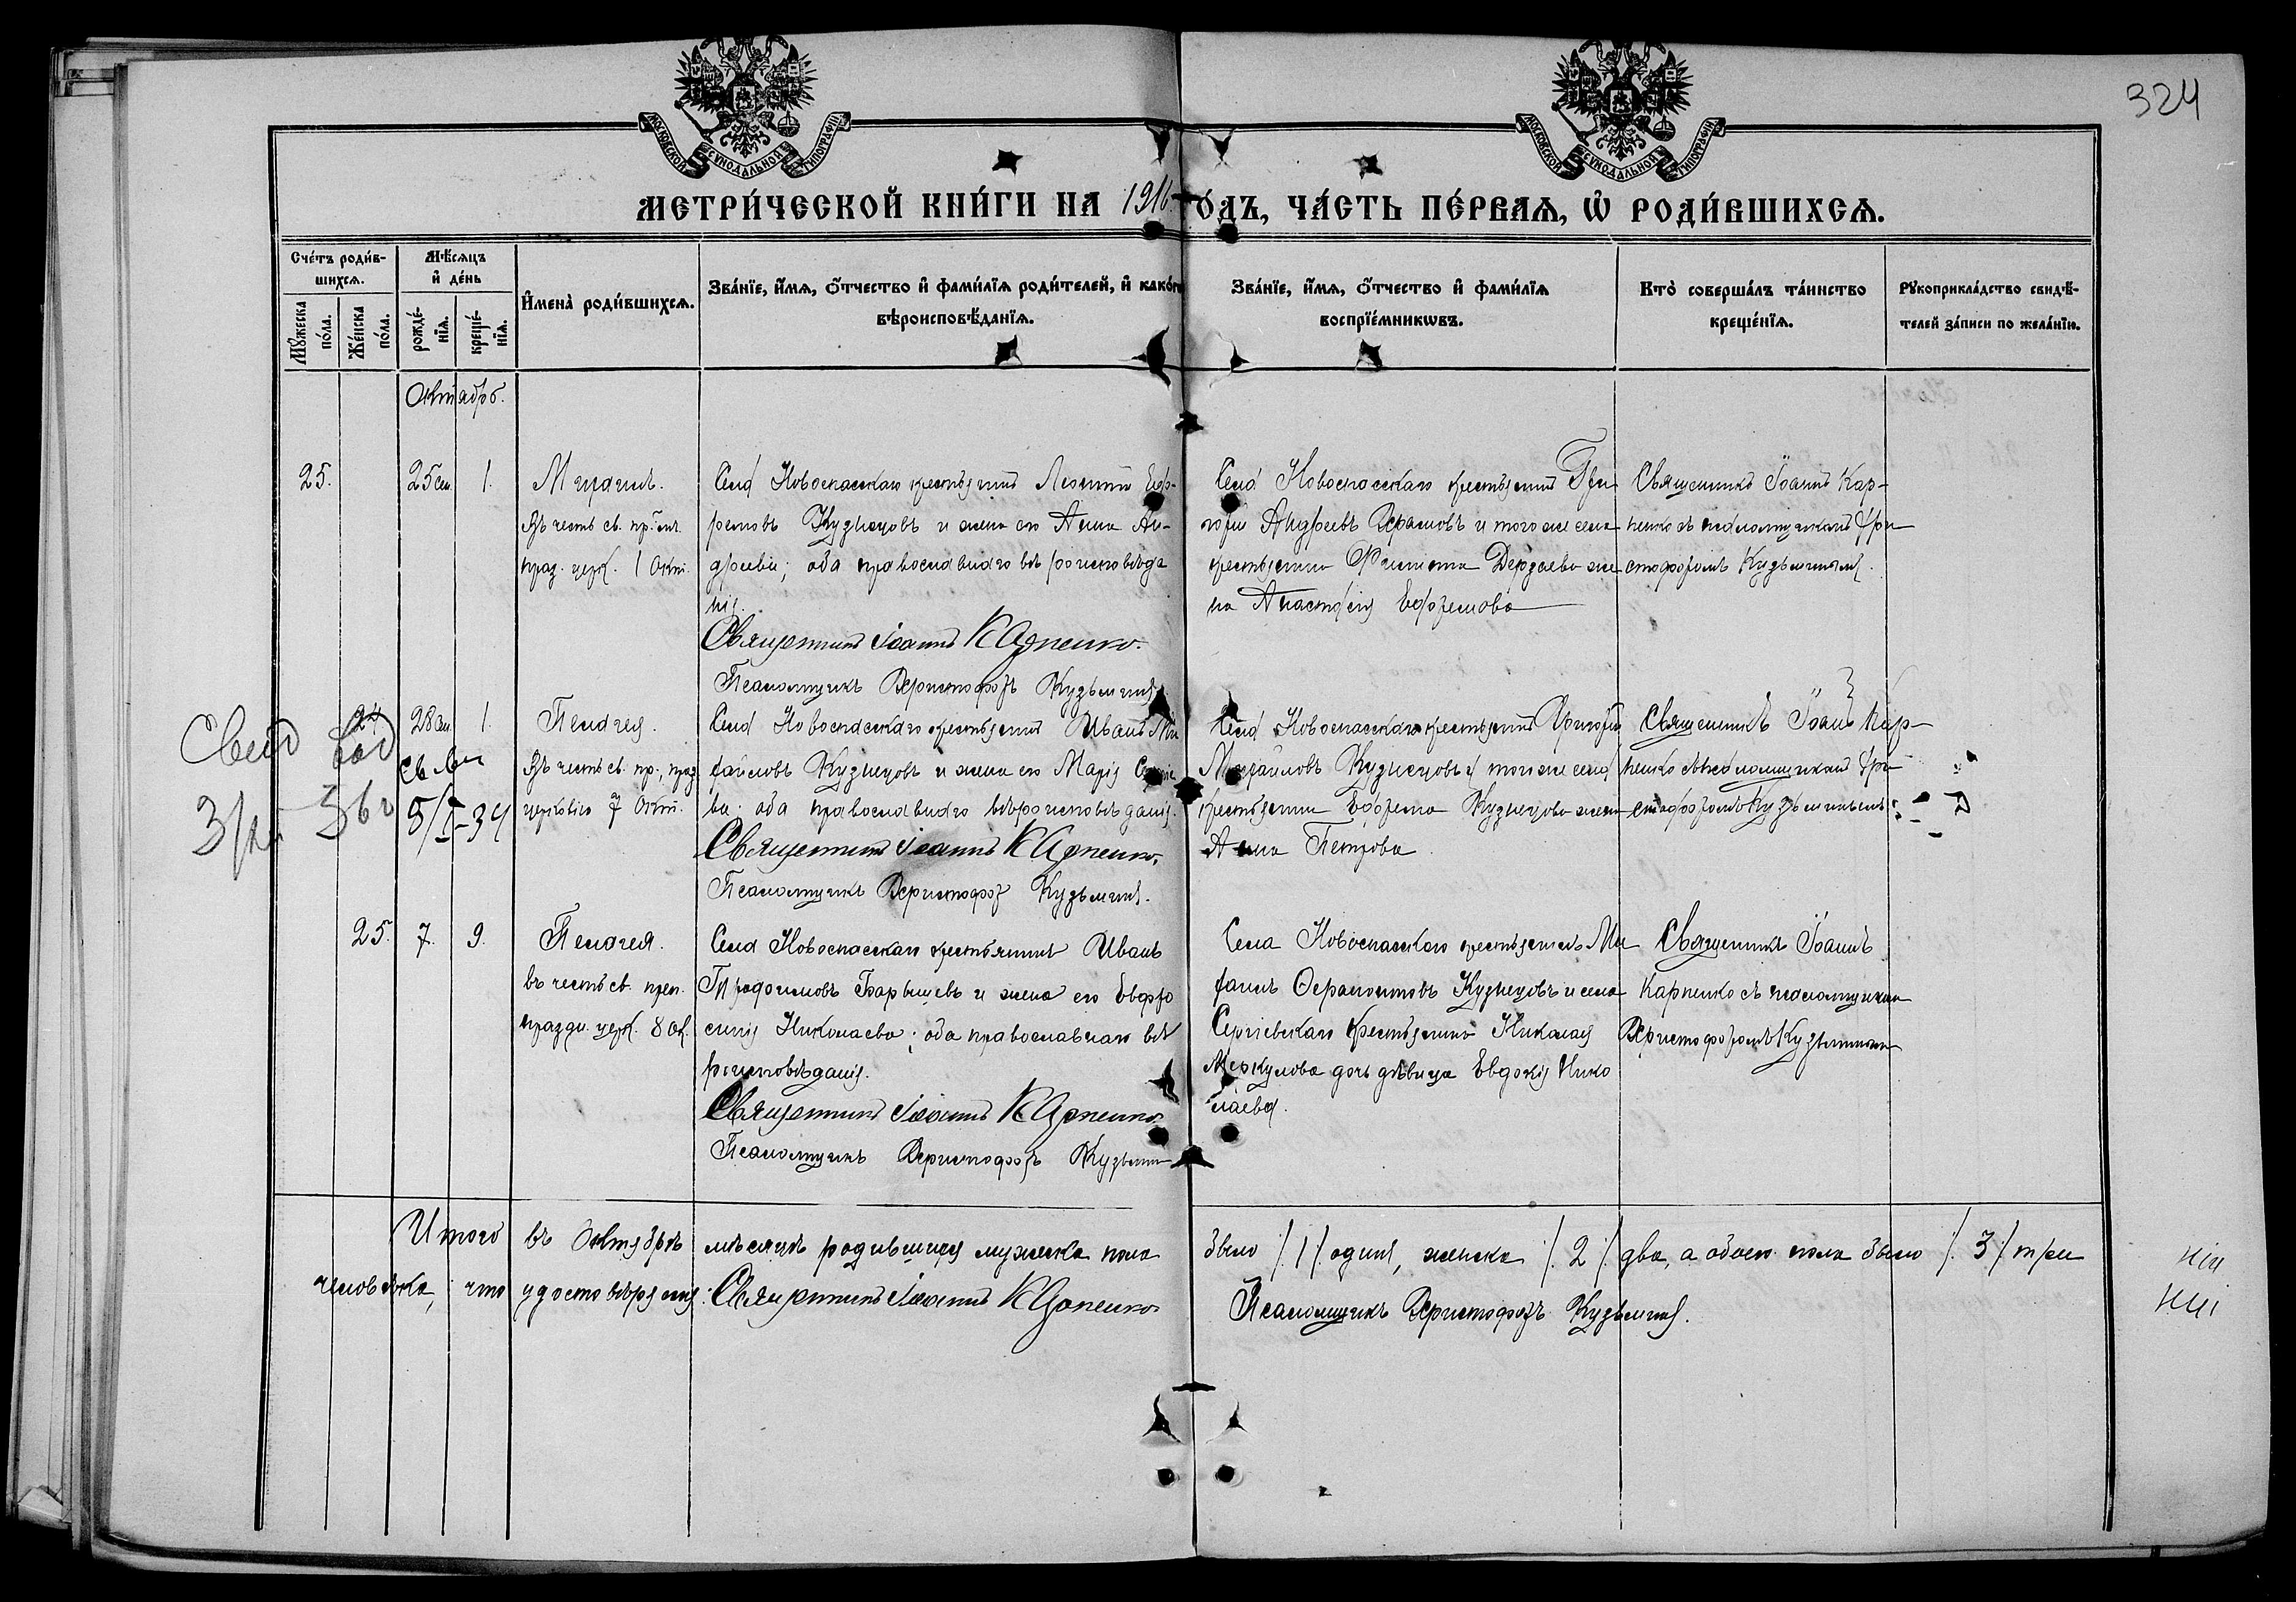 324
МОСКОВСКОЙ СѴНОДАЛЬНОЙ ТИПОГРАФІИ
МОСКОВСКОЙ СѴНОДАЛЬНОЙ ТИПОГРАФІИ
МЕТРИ́ЧЕСКОЙ КНИ́ГИ НА 1916 ОДЪ, ЧА́СТЬ ПЕ́РВАѦ, Ѡ҆ РОДИ́ВШИХСѦ.
Сче́тъ роди́в-
шихсѧ.
Мꙋ́жеска по́ла.
Же́нска по́ла.
Мѣ́сѧцъ и҆ де́нь
рожде́-нїѧ.
креще́-нїѧ.
И҆мена̀ роди́вшихсѧ.
Зва́нїе, и҆́мѧ, ѻ҆́тчество и҆ фами́лїѧ роди́телей, и҆ како́гѡ
вѣроисповѣ́данїѧ.
Зва́нїе, и҆́мѧ, ѻ҆́тчество и҆ фами́лїѧ
воспрїе́мникѡвъ.
Кто̀ соверша́лъ та́инство
креще́нїѧ.
Рꙋкоприкла́дство свидѣ́-
телей за́писи по жела́нїю.
Октябрь.
25.
25 сен. 1.
Михаилъ.
Въ честь св.
праз. церк. 1 Окт.
Села Новоспасскаго крестьянинъ Леонтій Еф-
ремовъ Кузнецовъ и жена его Анна Ан-
дреева; оба православнаго вѣроисповѣда
нія.
Священникъ Іоаннъ Карпенко.
Псаломщикъ Христофоръ Кузьминъ
Села Новоспасскаго крестьянинъ Гри
горій Андреевъ Храмовъ и того же села
крестьянина Филиппа Держаева же
на Анастасія Ефремова
Священникъ Іоаннъ Кар-
пенко съ псаломщикомъ Хри
стофоромъ Кузьминымъ.
24
28 сен. 1.
5/I-34
Пелагея.
Въ честь св. пр., праз.
церковію 7 Окт.
Села Новоспасскаго крестьянинъ Иванъ Ми
хайловъ Кузнецовъ и жена его Марія
ва; оба православнаго вѣроисповѣданія.
Священникъ Іоаннъ Карпенко.
Псаломщикъ Христофоръ Кузьминъ.
Села Новоспасскаго крестьянинъ Григорій
Михайловъ Кузнецовъ и того же села
крестьянина Ефрема Кузнецова жена
Анна Петрова
Священникъ Іоаннъ Кар-
пенко съ псаломщикомъ Хри
стофоромъ Кузьминымъ.
25. 7. 9.
Пелагея.
въ честь св. преп.
праздн. церк. 8 Ок.
Села Новоспасскаго крестьянинъ Иванъ
Трофимовъ Барышевъ и жена его Евфро
синія Николаева; оба православнаго вѣ
роисповѣданія.
Священникъ Іоаннъ Карпенко
Псаломщикъ Христофоръ Кузьминъ
Села Новоспасскаго крестьянинъ Ми
хаилъ Кузнецовъ и села
Сергіевскаго крестьянина Николая
Меркулова дочь дѣвица Евдокія Нико
лаева.
Священникъ Іоаннъ
Карпенко съ псаломщикомъ
Христофоромъ Кузьминымъ
Итого въ Октябрѣ мѣсяцѣ родившихся мужеска пола было /.1/. одинъ, женска /.2/. два, а обоего пола было /.3/. три
человѣка, что удостовѣряемъ: Священникъ Іоаннъ Карпенко
Псаломщикъ Христофоръ Кузьминъ.